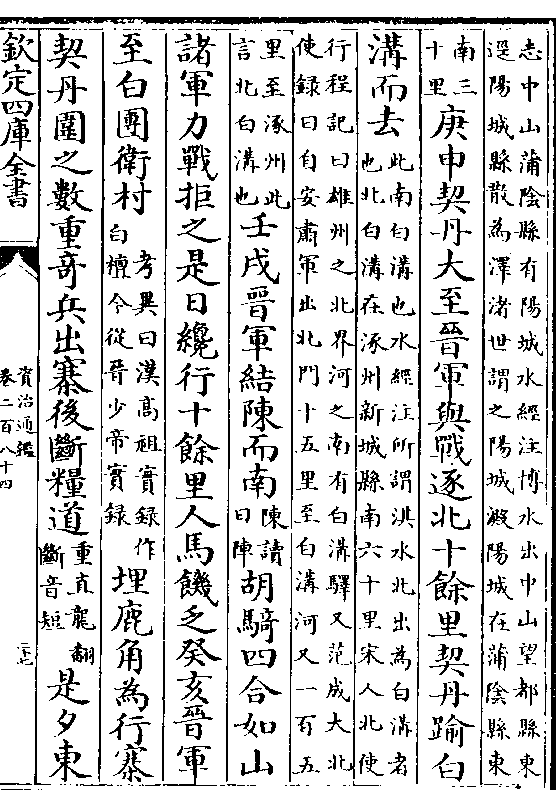 志中山蒲陰縣有陽城水經注博水出中山望都縣東逕陽城縣散為澤渚世謂之陽城澱陽城在蒲陰縣東
南三十里庚申契丹大至晉軍與戰逐北十餘里契丹踰白
溝而去此南白溝也水經注所謂淇水北出為白溝者也北白溝在涿州新城縣南六十里宋人北使
行程記曰雄州之北界河之南有白溝驛又范成大北使錄曰自安肅軍出北門十五里至白溝河又一百五
里至涿州此言北白溝也壬戌晉軍結陳而南陳讀曰陣胡騎四合如山
諸軍力戰拒之是日纔行十餘里人馬饑乏癸亥晉軍
至白團衛村考異曰漢高祖實錄作白檀今從晉少帝實錄埋鹿角為行寨
契丹圍之數重奇兵出寨後斷糧道重直龍翻斷音短是夕東
欽定四庫全書
資治通鑑
卷二百八十四